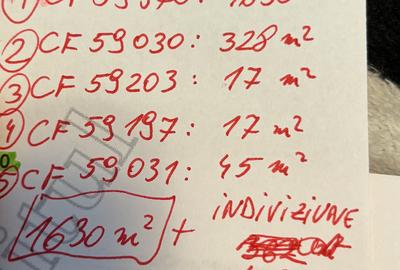 ② CF 59030: 328 m²
③ CF 59203: 17 m²
④ CF 59197: 17 m²
⑤ CF 59031: 45 m²
1630 m² + INDIVIZIUNE